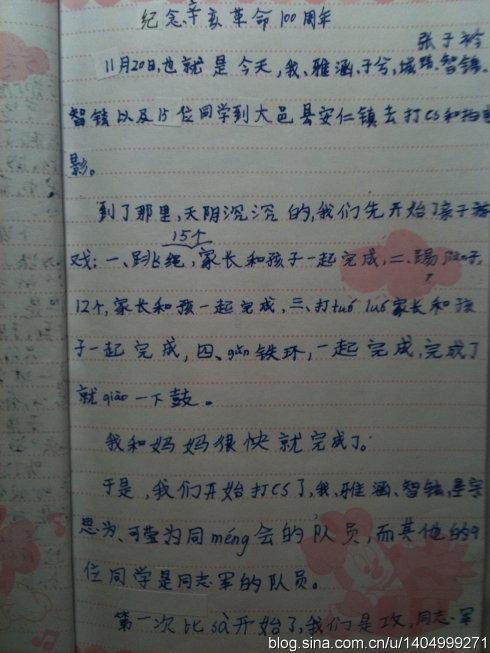 纪念辛亥革命100周年
张子衿
11月20日,也就是今天,我、雅涵、子兮、智镜、
智铉以及15位同学到大邑县安仁镇去打CS和拍电
影。
到了那里,天阴沉沉的,我们先开始了亲子游
15个
戏:一、跳绳,家长和孩子一起完成,二、踢
12个,家长和孩一起完成,三、打tuó luó家长和孩
子一起完成,四、gǔn铁环,一起完成,完成了
就qiāo一下鼓。
我和妈妈很快就完成了。
于是,我们开始打CS了,我、雅涵、智铉、
思为、可莹为同méng会的队员,而其他的9
位同学是同志军的队员。
第一次比sài开始了,我们是攻,同志军
blog.sina.com.cn/u/1404999271